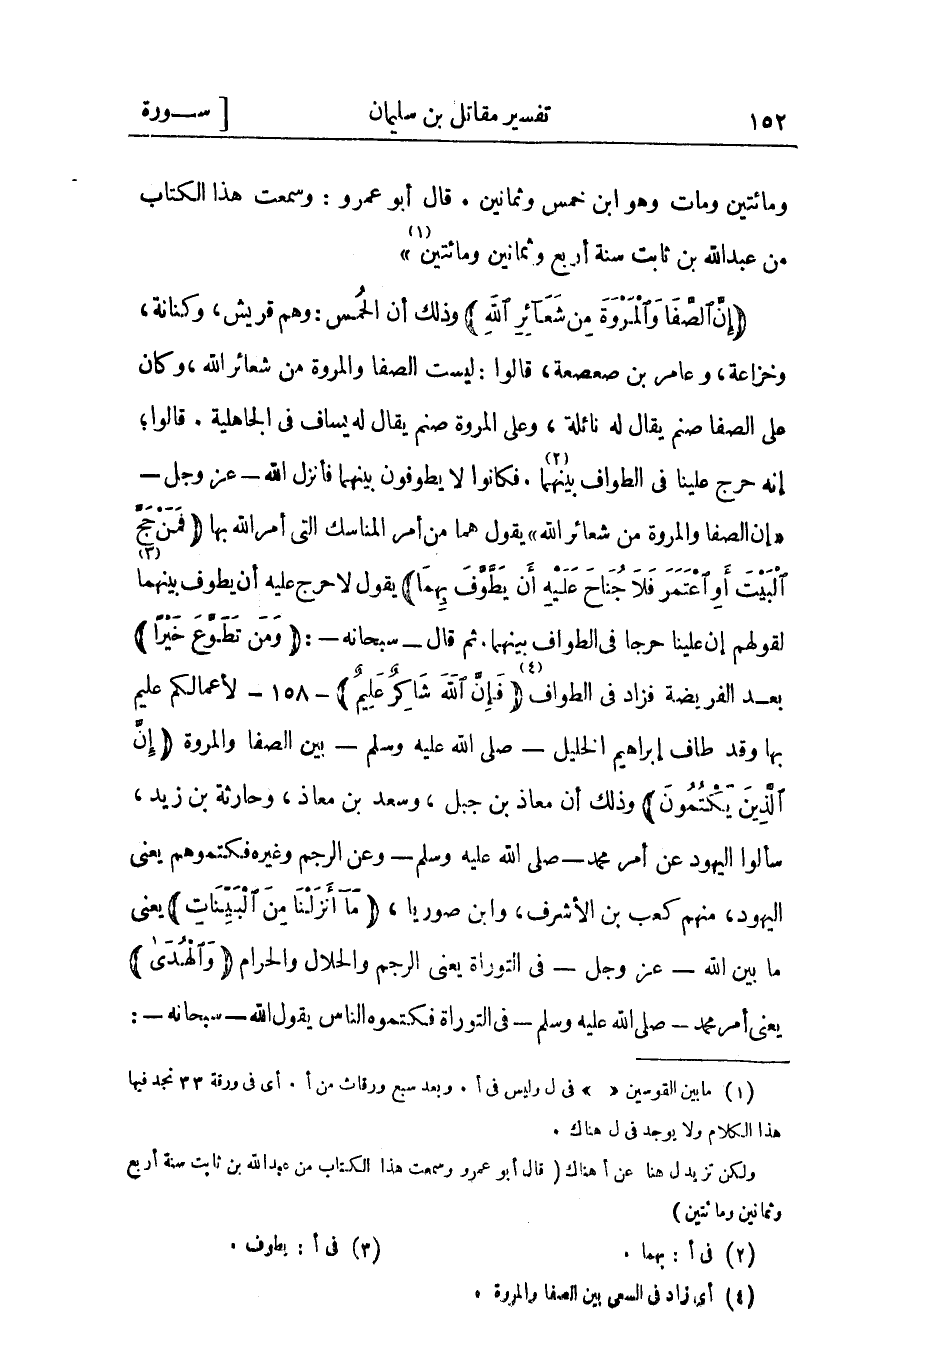 ١٥٢ تفسير مقاتل بن سليمان [ سـورة
ومائتين ومات وهو ابن خمس وثمانين . قال أبو عمرو : وسمعت هذا الكتاب
من عبدالله بن ثابت سنة أربع وثمانين ومائتين(١) »
﴿إِنَّ ٱلصَّفَا وَٱلْمَرْوَةَ مِن شَعَآئِرِ ٱللَّهِ﴾ وذلك أن الحُمس : وهم قريش، وكنانة،
وخزاعة، وعامر بن صعصعة، قالوا : ليست الصفا والمروة من شعائر الله ، وكان
على الصفا صنم يقال له نائلة ، وعلى المروة صنم يقال له يساف فى الجاهلية . قالوا :
إنه حرج علينا فى الطواف بينهما(٢) . فكانوا لا يطوفون بينهما فأنزل الله — عز وجل —
«إن الصفا والمروة من شعائر الله» يقول هما من أمر المناسك التى أمر الله بها ﴿فَمَنْ حَجَّ
ٱلْبَيْتَ أَوِ ٱعْتَمَرَ فَلَا جُنَاحَ عَلَيْهِ أَن يَطَّوَّفَ بِهِمَا﴾ يقول لا حرج عليه أن يطوف بينهما(٣)
لقولهم إن علينا حرجا فى الطواف بينهما. ثم قال — سبحانه — : ﴿وَمَن تَطَوَّعَ خَيْرًا﴾
بعـد الفريضة فزاد فى الطواف(٤) ﴿فَإِنَّ ٱللَّهَ شَاكِرٌ عَلِيمٌ﴾ - ١٥٨ - لأعمالكم عليم
بها وقد طاف إبراهيم الخليل — صلى الله عليه وسلم — بين الصفا والمروة ﴿إِنَّ
ٱلَّذِينَ يَكْتُمُونَ﴾ وذلك أن معاذ بن جبل ، وسعد بن معاذ ، وحارثة بن زيد ،
سألوا اليهود عن أمر محمد — صلى الله عليه وسلم — وعن الرجم وغيره فكتموهم يعنى
اليهود، منهم كعب بن الأشرف، وابن صوريا ، ﴿مَآ أَنزَلْنَا مِنَ ٱلْبَيِّنَاتِ﴾ يعنى
ما بين الله — عز وجل — فى التوراة يعنى الرجم والحلال والحرام ﴿وَٱلْهُدَىٰ﴾
يعنى أمر محمد — صلى الله عليه وسلم — فى التوراة فكتموه الناس يقول الله — سبحانه — :
(١) مابين القوسين « » فى ل وليس فى أ . وبعد سبع ورقات من أ . أى فى ورقة ٣٣ نجد فيها
هذا الكلام ولا يوجد فى ل هناك .
ولكن تزيد ل هنا عن أ هناك ( قال أبو عمرو وسمعت هذا الكتاب من عبدالله بن ثابت سنة أربع
وثمانين ومائتين )
(٢) فى أ : بهما . (٣) فى أ : يطوف .
(٤) أى زاد فى السعى بين الصفا والمروة .